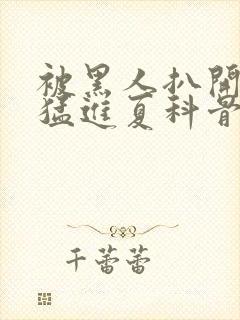 被黑人扒開
猛進夏科普
千蕾蕾